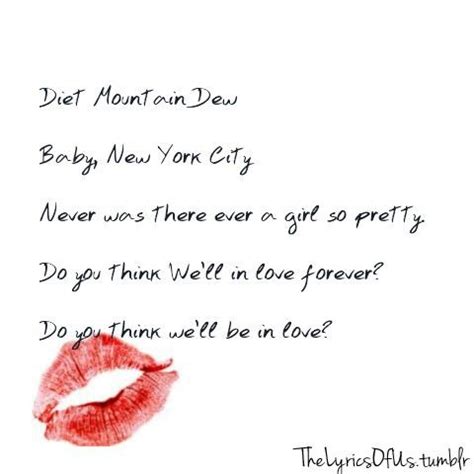 Diet Mountain Dew
Baby, New York City
Never was there ever a girl so pretty.
Do you think We'll in love forever?
Do you think we'll be in love?
TheLyricsOfUs.tumblr